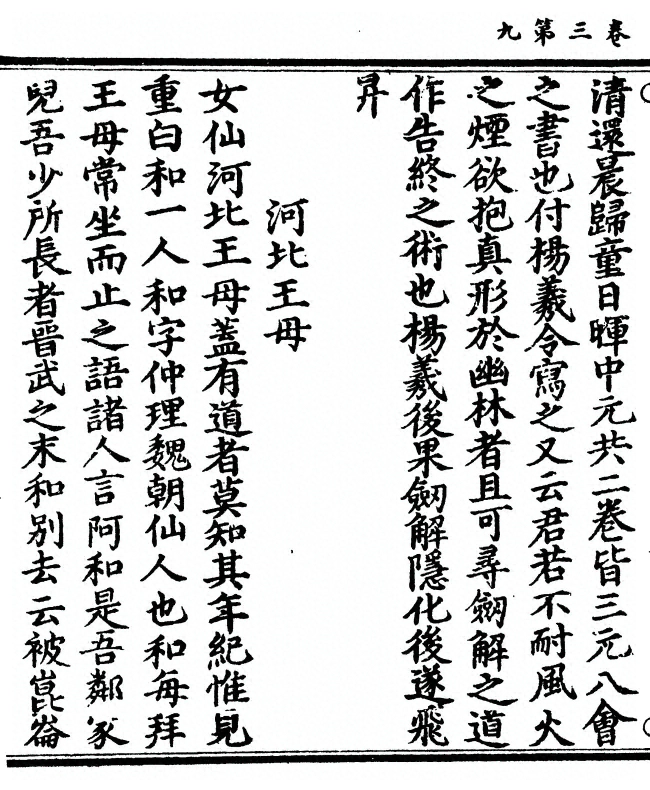 卷三第九
清還晨歸童日暉中元共二卷皆三元八會
之書也付楊羲令寫之又云君若不耐風火
之煙欲抱真形於幽林者且可尋劒解之道
作告終之術也楊羲後果劒解隱化後遂飛
昇
河北王母
女仙河北王母蓋有道者莫知其年紀惟見
重白和一人和字仲理魏朝仙人也和每拜
王母常坐而止之語諸人言阿和是吾鄰家
兒吾少所長者晋武之末和別去云被崑崙